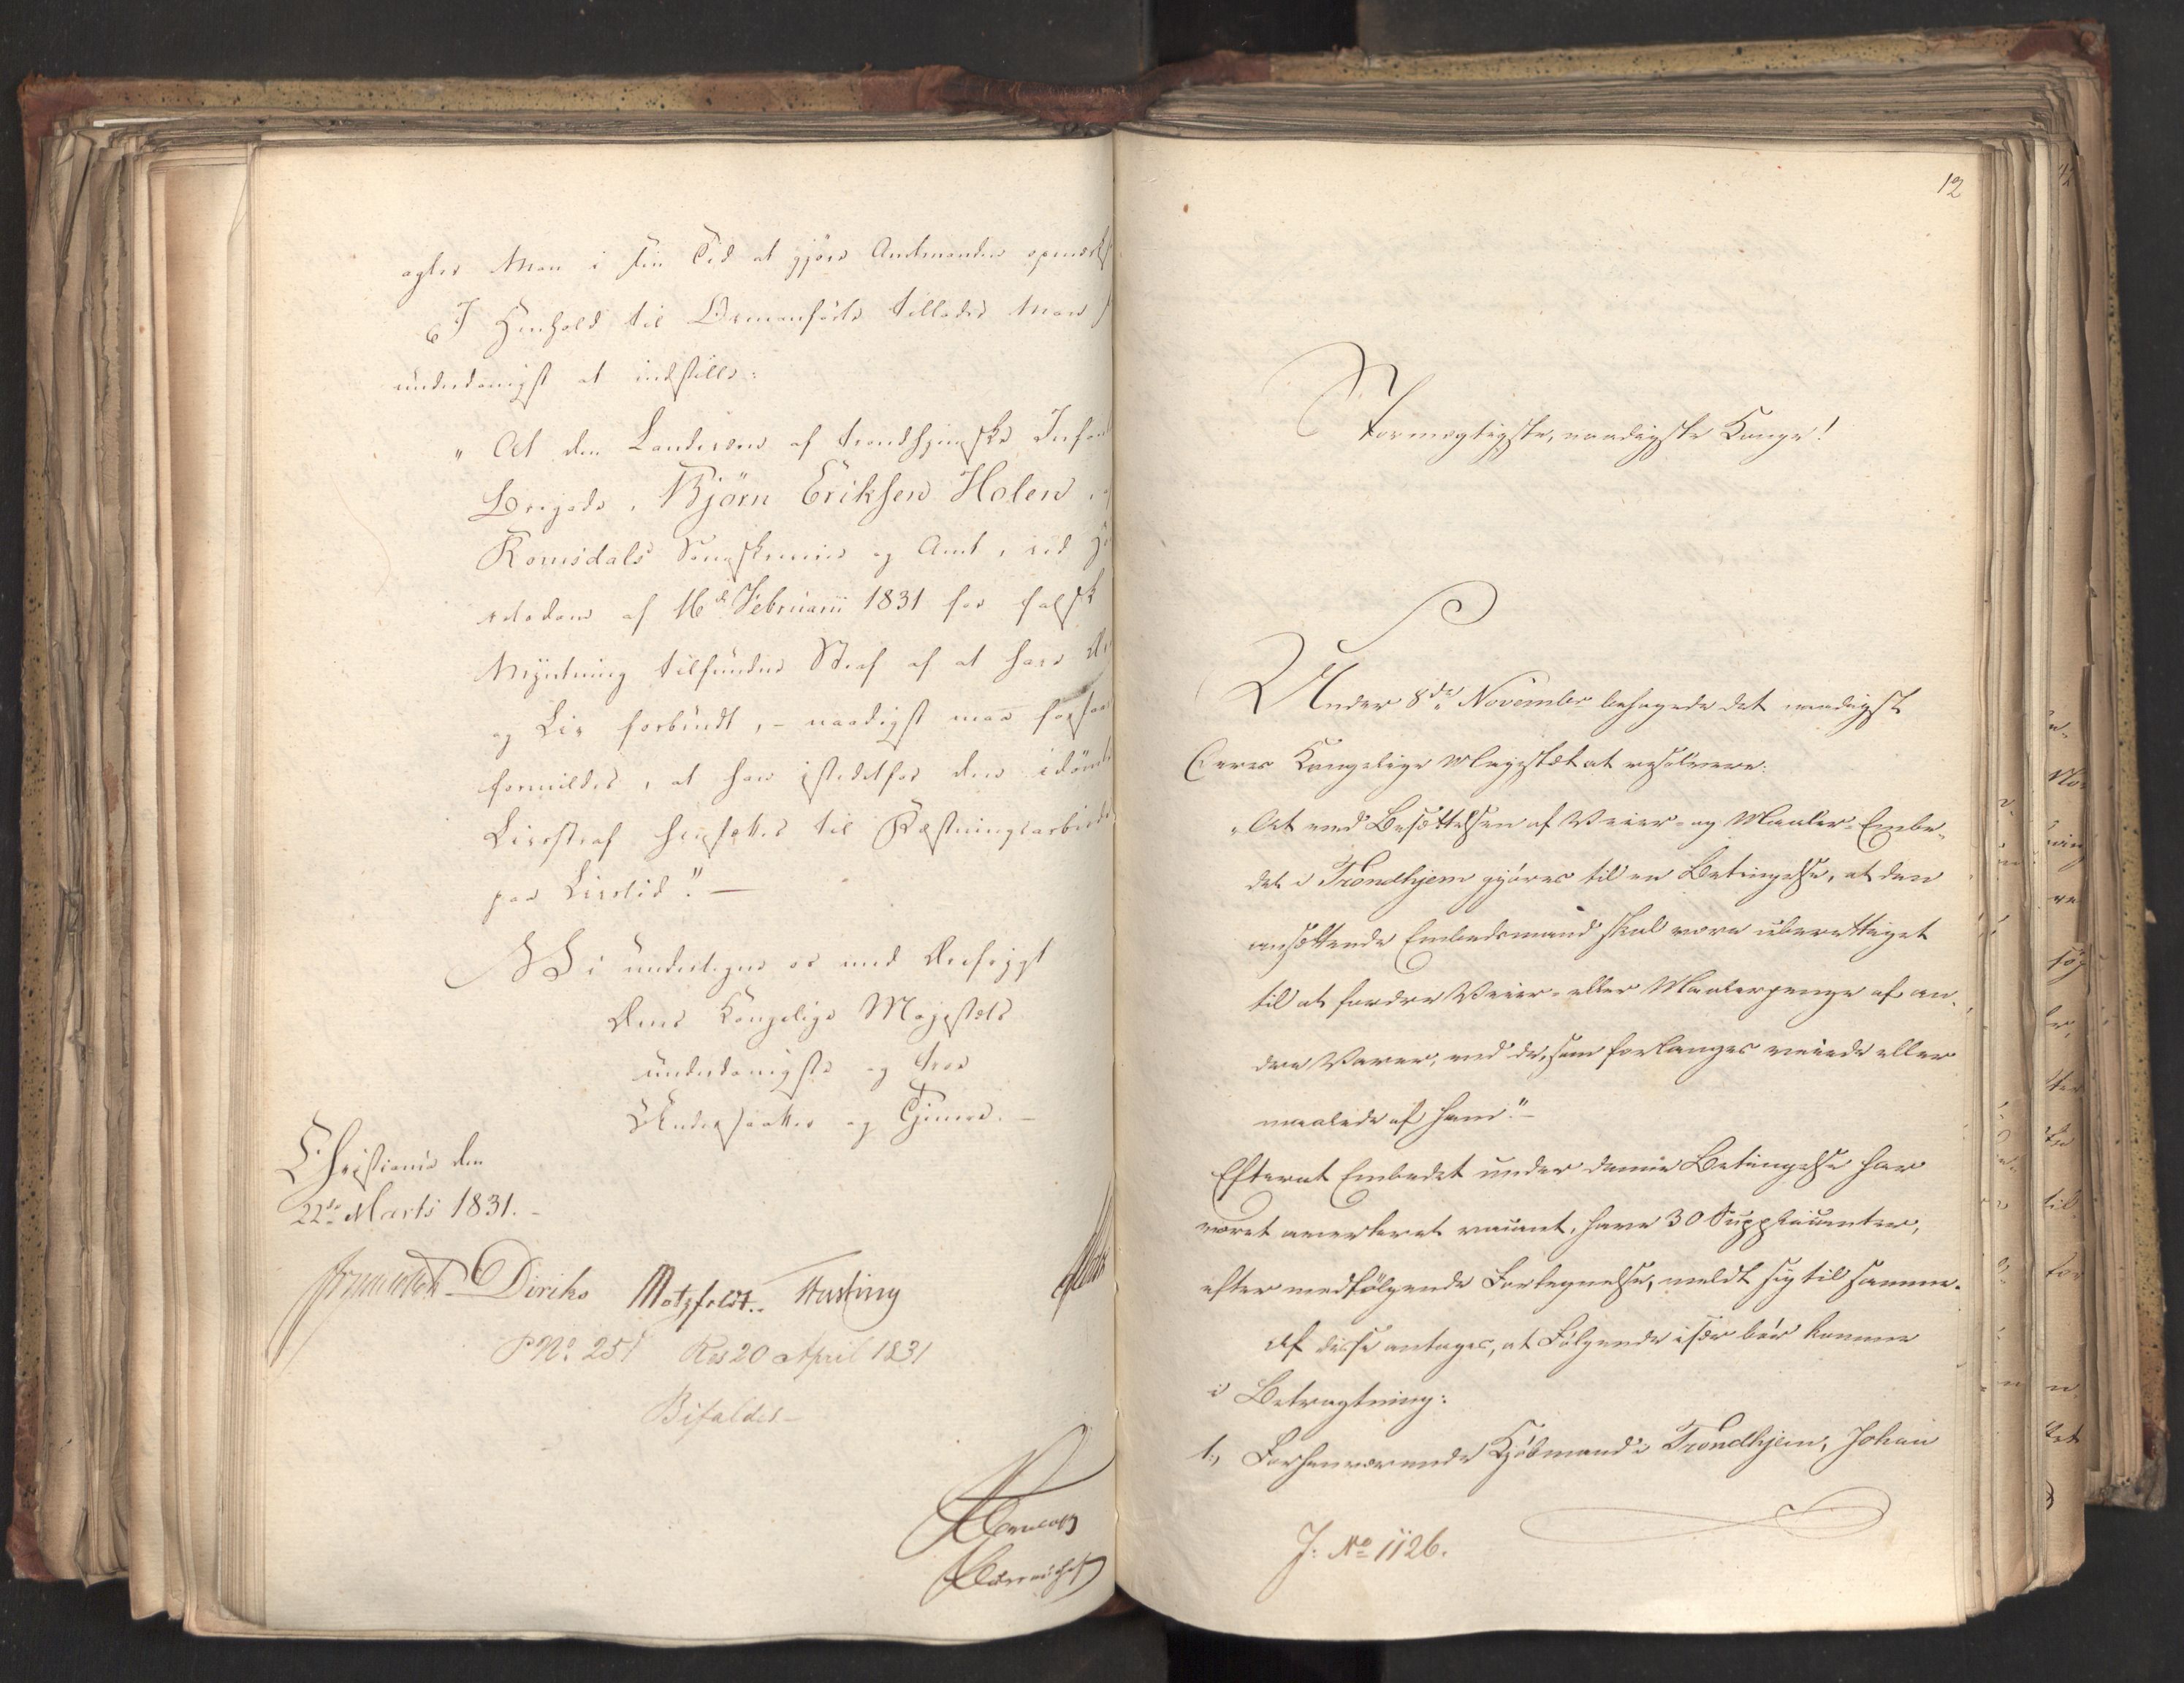 agter Man i sin Tid at gjøre Amtmanden opmærks
I Henhold til Ovenanførte tillader Man
underdanigst at indstille:
„At den Landeværn af trondhjemske Infan
Brigade, Bjørn Eriksen Holen,
Romsdals Sorenskriverie og Amt, ved
retsdom af 16de Februarii 1831 for falsk
Myntning tilfunden Straf af at have
og Liv forbrudt, – naadigst maa
formildes, at han istedetfor den idømte
Livsstraf hensættes til Fæstningsarbeide
paa Livstid." —
Vi undertegne os med Devotion
Deres Kongelige Majestæts
underdanigste og troe
Undersaatter og Tjenere. –
Christiania den
22de Marts 1831. –
Diriks Motzfeldt. Vedel
P No. 251 Res 20 April 1831
Bifaldes –
12
Stormægtigste, naadigste Konge!
Under 8de November behagede det naadigst
Deres Kongelige Majestæt at resolvere:
„At ved Besættelsen af Veier- og Maaler-Embe-
det i Trondhjem gjøres til en Betingelse, at den
ansættende Embedsmand skal være uberettiget
til at fordre Veier- eller Maalerpenge af an-
dre Varer, end de, som forlanges veiede eller
maalede af ham." –
Efterat Embedet under denne Betingelse har
været averteret vacant, have 30 Supplicanter,
efter medfølgende Fortegnelse, meldt sig til samme.
Af disse antages, at Følgende især bør komme
i Betragtning:
1., Forhenværende Kjøbmand i Trondhjem, Johan
J: No 1126.